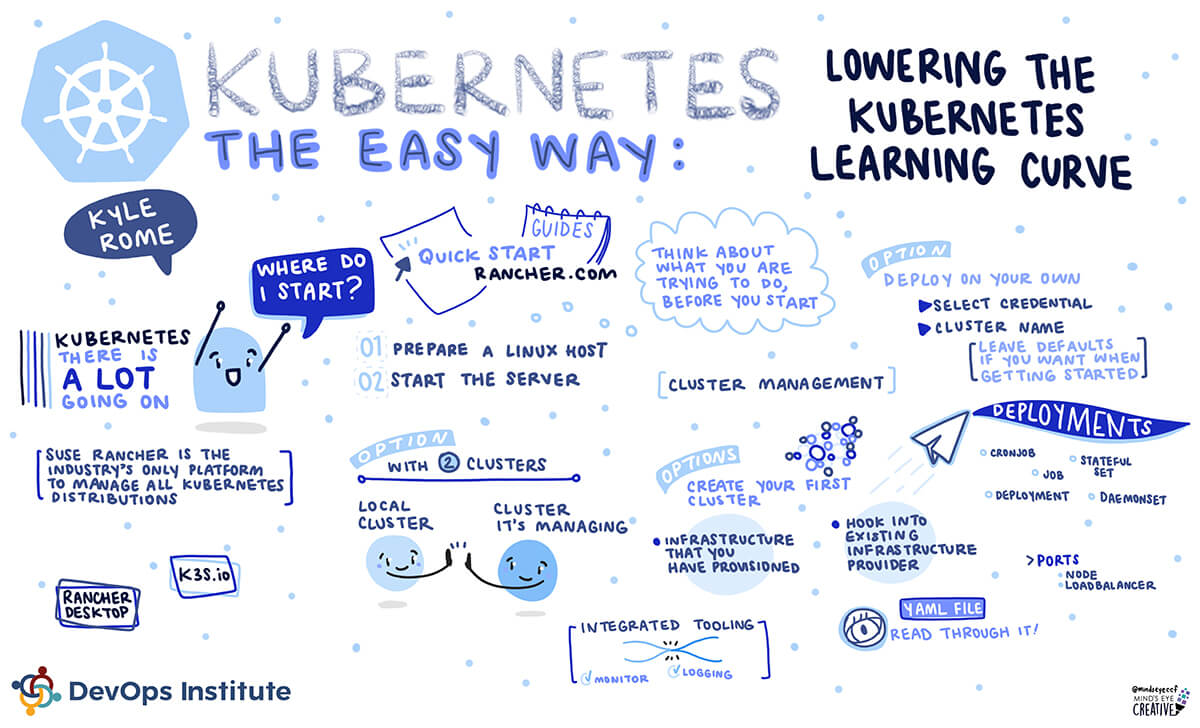 KUBERNETES
THE EASY WAY:
LOWERING THE
KUBERNETES
LEARNING CURVE
KYLE
ROME
WHERE DO
I START?
KUBERNETES
THERE IS
A LOT
GOING ON
SUSE RANCHER IS THE
INDUSTRY'S ONLY PLATFORM
TO MANAGE ALL KUBERNETES
DISTRIBUTIONS
K3S.io
RANCHER
DESKTOP
GUIDES
QUICK START
RANCHER.COM
01 PREPARE A LINUX HOST
02 START THE SERVER
OPTION
WITH 2 CLUSTERS
LOCAL
CLUSTER
CLUSTER
IT'S MANAGING
THINK ABOUT
WHAT YOU ARE
TRYING TO DO,
BEFORE YOU START
[CLUSTER MANAGEMENT]
OPTIONS
CREATE YOUR FIRST
CLUSTER
INFRASTRUCTURE
THAT YOU
HAVE PROVISIONED
HOOK INTO
EXISTING
INFRASTRUCTURE
PROVIDER
INTEGRATED TOOLING
MONITOR
LOGGING
OPTION
DEPLOY ON YOUR OWN
SELECT CREDENTIAL
CLUSTER NAME
LEAVE DEFAULTS
IF YOU WANT WHEN
GETTING STARTED
DEPLOYMENTS
CRONJOB
JOB
STATEFUL
SET
DEPLOYMENT
DAEMONSET
> PORTS
NODE
LOADBALANCER
YAML FILE
READ THROUGH IT!
DevOps Institute
@mindseyeccf
MIND'S EYE
CREATIVE